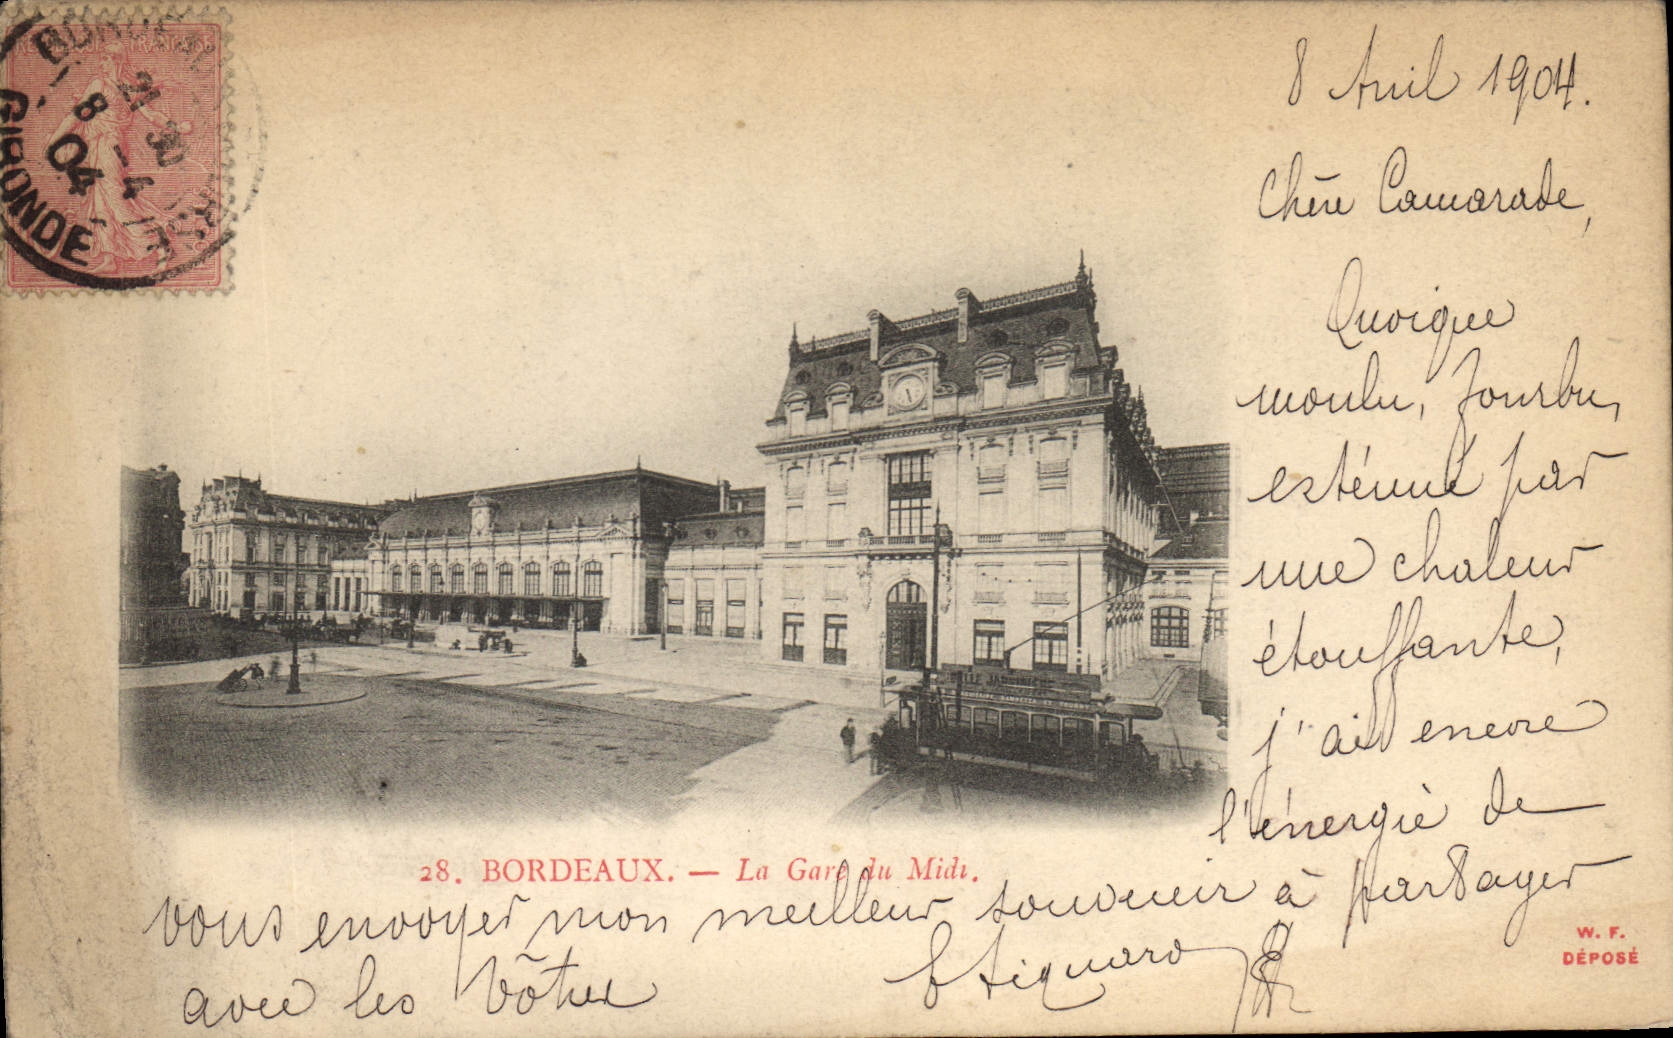 RÉPUBLIQUE FRANÇAISE
BORDEAUX
21 30
8 -4
04
GIRONDE
8 Avril 1904.
Chère Camarade,
Quoique
moulu, fourbu,
exténué par
une chaleur
étouffante,
j'ai encore
l'énergie de
vous envoyer mon meilleur souvenir à partager
avec les vôtres
BELLE JARDINIÈRE
28. BORDEAUX. — La Gare du Midi.
W. F.
DÉPOSÉ